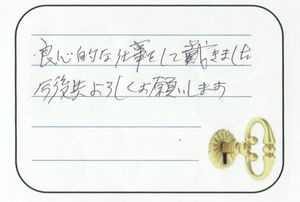 ・良心的な仕事をして戴きました
今後共よろしくお願いします